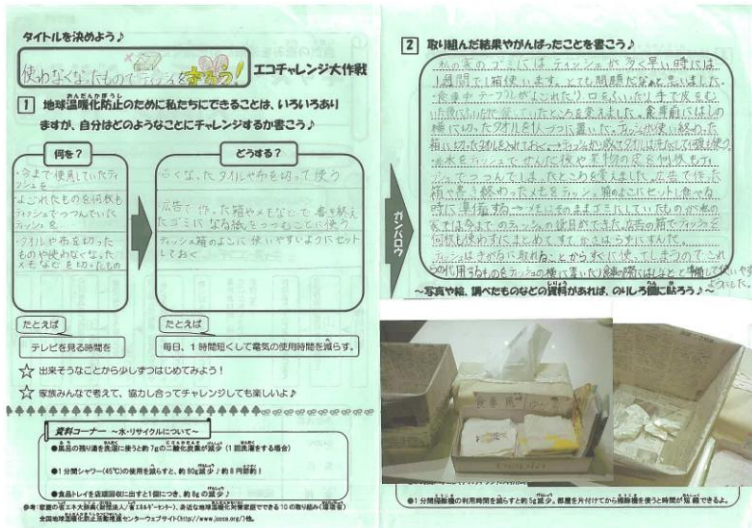 タイトルを決めよう♪
使わなくなったものでティッシュを守ろう!
エコチャレンジ大作戦
1 地球温暖化防止のために私たちにできることは、いろいろあり
ますが、自分はどのようなことにチャレンジするか書こう♪
何を?
どうする?
・今まで使用していたティ
ッシュを
よごれたものを何枚も
ティッシュでつつんでいた
ティッシュを
・タオルや布を切った
ものや使わなくなった
メモなどを切ったもの
古くなったタオルや布を切って使う
広告で作った箱やメモなどで書き終え
たゴミになる紙をつつむことに使う
ティッシュ箱のよこに使いやすいようにセット
しておく
たとえば
テレビを見る時間を
たとえば
毎日、1時間短くして電気の使用時間を減らす。
☆ 出来そうなことから少しずつはじめてみよう!
☆ 家族みんなで考えて、協力し合ってチャレンジしても楽しいよ♪
資料コーナー ~水・リサイクルについて~
●風呂の残り湯を洗濯に使うと約7gの二酸化炭素が減少(1回洗濯をする場合)
●1分間シャワー(45℃)の使用を減らすと、約80g減少♪約8円節約!
●食品トレイを店頭回収に出すと1個につき、約8gの減少♪
参考:家庭の省エネ大辞典(財団法人/省エネルギーセンター)、身近な地球温暖化対策家庭でできる10の取り組み(環境省)
全国地球温暖化防止活動推進センターウェブサイト(http://www.jccca.org/)他。
ガンバロウ
2 取り組んだ結果やがんばったことを書こう♪
私の家のゴミにはティッシュが多く早い時には
1週間で1箱使います。とても問題だなぁと思いました。
食事中テーブルがよごれたり口をふいたり手で皮をむ
いた後に
ところを変えました。食事前にはしの
横に切ったタオルを1人1つに置いた。ティッシュが使い終わった
箱に切ったタオルを入れておく
ティッシュでかんだ後や果物の皮を何枚もティ
ッシュでつつんでしまったところを変えました。広告で作った
箱や書き終わったメモをティッシュ箱のよこにセットし食べる
時に準備する→メモはそのままゴミにしていたものが私の
家では今までのティッシュの役目ができた。広告の箱でティッシュを
何枚も使わずにまとめてすてかさはらずにすんだ。
ティッシュはきがるに取れることからすぐに使ってしまうので、これ
らの代用するものをティッシュの横に置いたり食事の際にはしなどと準備して使いやす
いようにした。
~写真や絵、調べたものなどの資料があれば、のりしろ欄に貼ろう♪~
食事用
●1分間掃除機の利用時間を減らすと約5g減少。部屋を片付けてから掃除機を使うと時間が短縮できるよ。